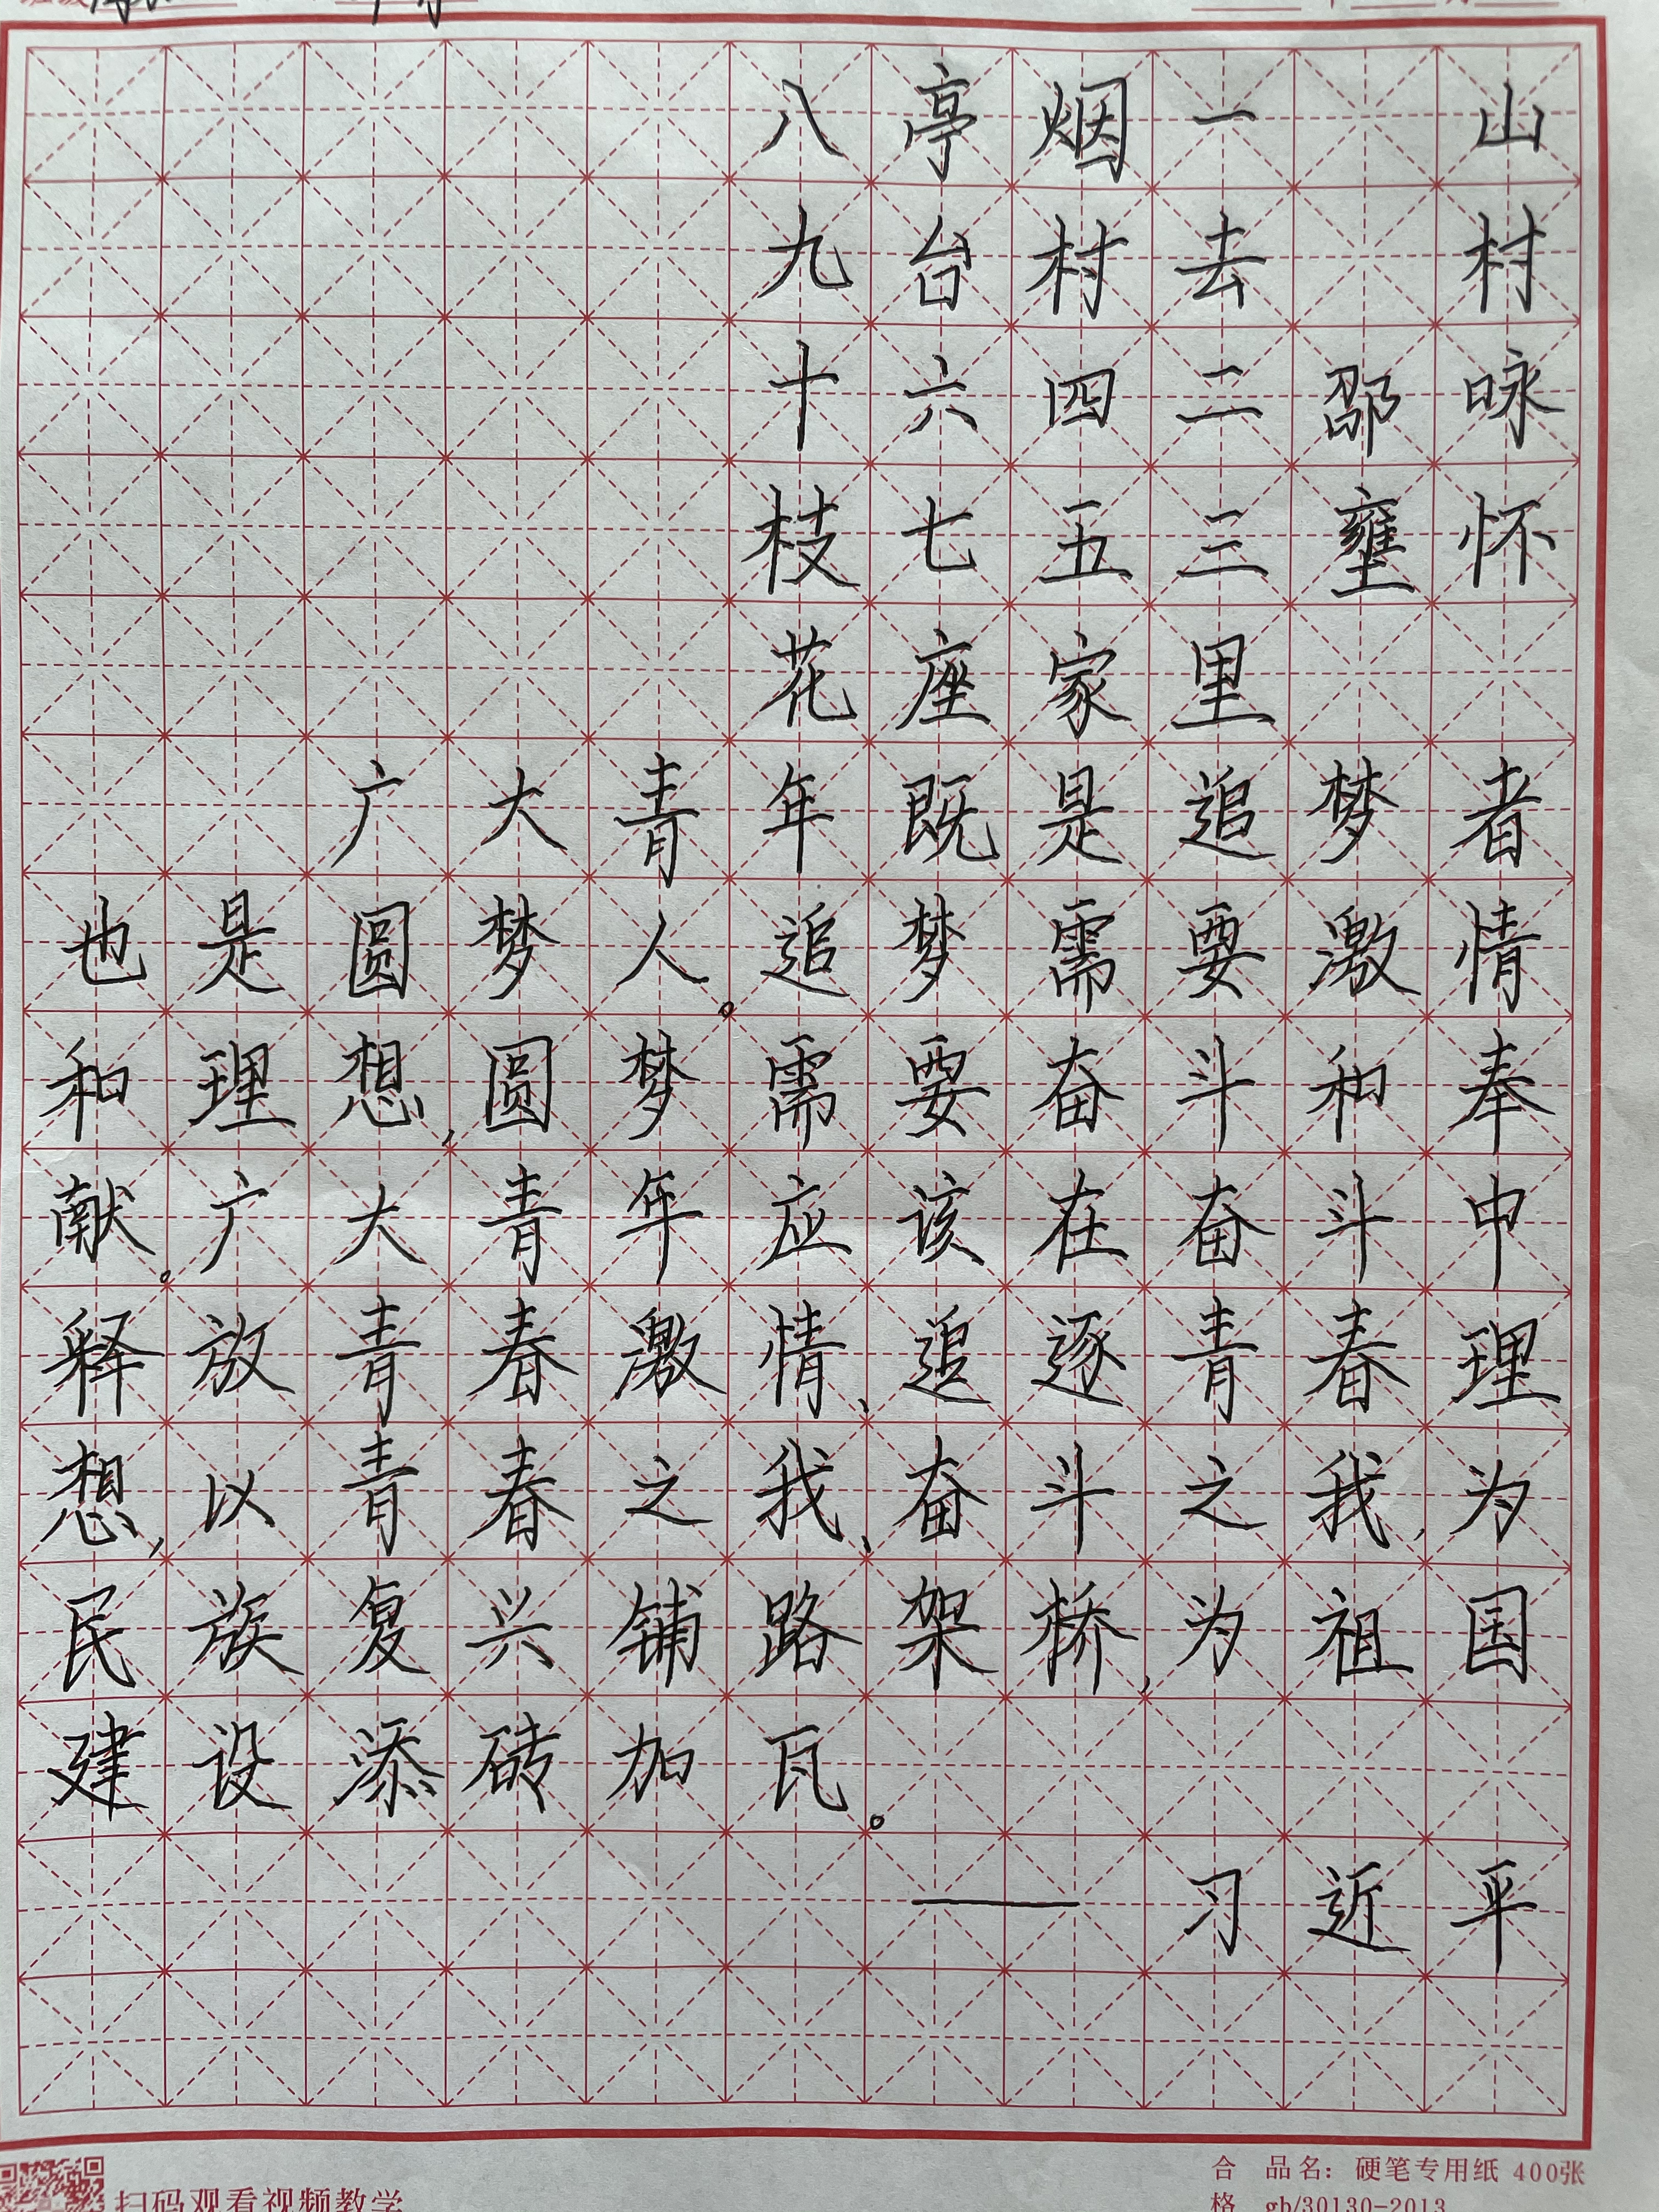 山村咏怀
邵壅
一去二三里
烟村四五家
亭台六七座
八九十枝花
广大青年既是追梦者
也是圆梦人。追梦需要激情
和理想,圆梦需要奋斗和奉
献。广大青年应该在奋斗中
释放青春激情、追逐青春理
想,以青春之我、奋斗之我,为
民族复兴铺路架桥,为祖国
建设添砖加瓦。
——习近平
扫码观看视频教学
合 品名：硬笔专用纸 400张
格 gb/30130-2013